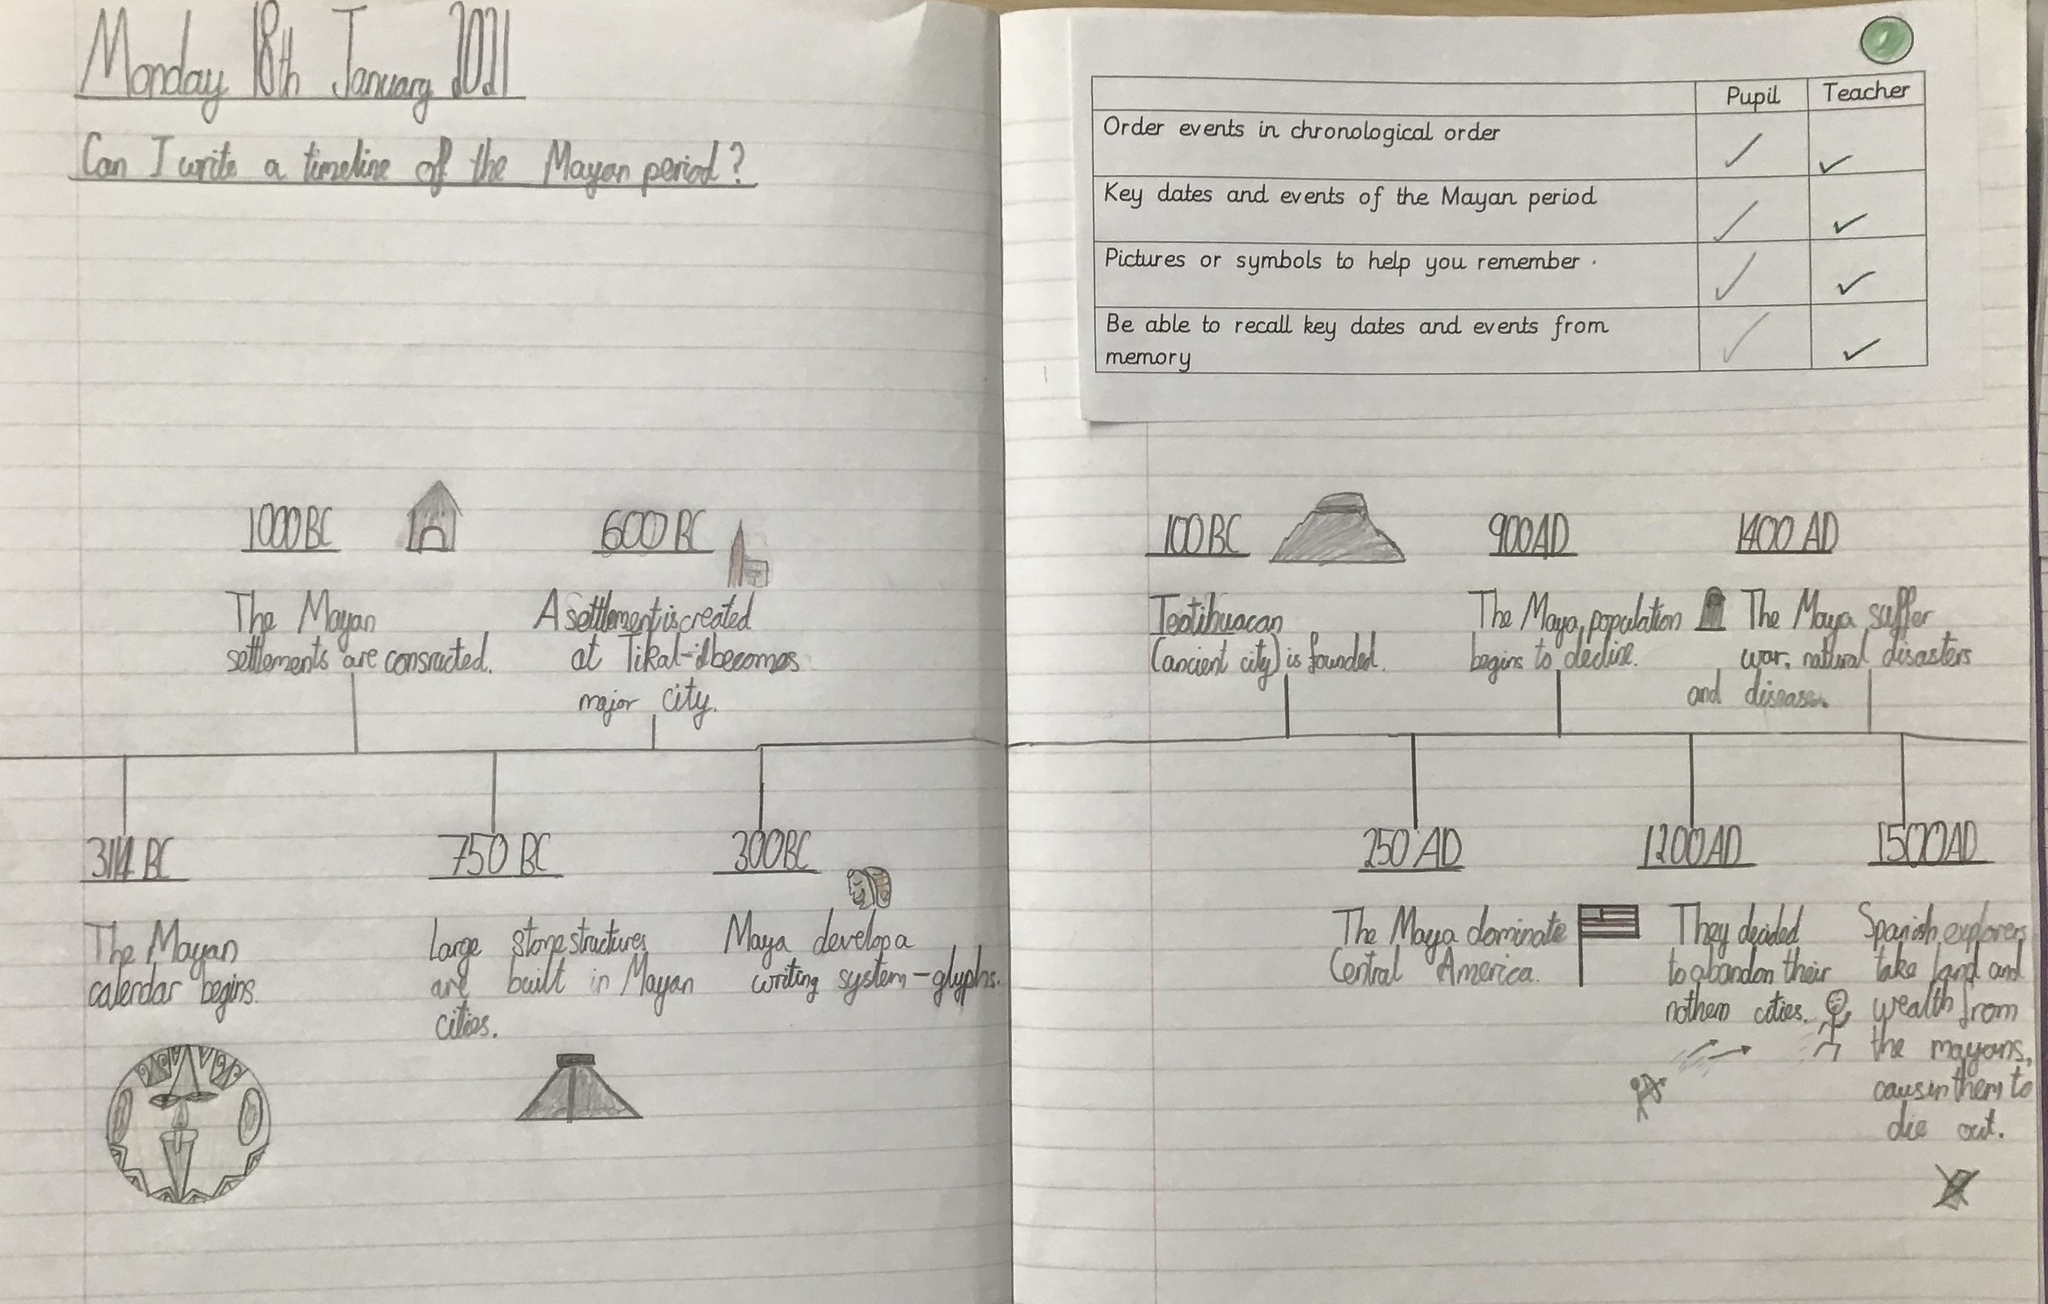 Monday 18th January 2021
Can I write a timeline of the Mayan period?
Pupil Teacher
Order events in chronological order
Key dates and events of the Mayan period
Pictures or symbols to help you remember .
Be able to recall key dates and events from
memory
1000 BC
The Mayan
settlements are consructed.
600 BC
A settlement is created
at Tikal-it becomes
major city.
3114 BC
The Mayan
calendar begins.
750 BC
Large stone structures
are built in Mayan
cities.
300BC
Maya develop a
writing system - glyphs.
100 BC
Teotihuacan
(ancient city) is founded.
900AD
The Maya population
begins to decline.
1400 AD
The Maya suffer
war, natural disasters
and disease.
250 AD
The Maya dominate
Central America.
1200AD
They decided
to abandon their
nothern cities.
1500AD
Spanish explorers
take land and
wealth from
the mayans,
causin them to
die out.